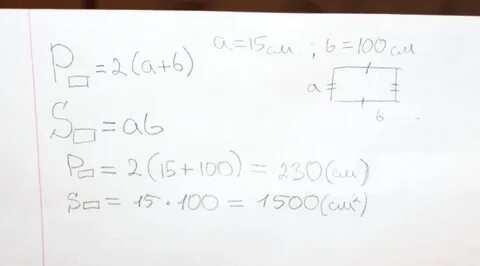 a=15см.; b=100см
P▭=2(a+b)
a
b
S▭=ab
P▭=2(15+100)=230(см)
S▭=15·100=1500(см²)